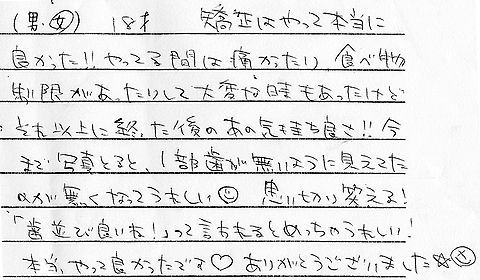 (男・女) 18才 矯正はやって本当に
良かった!!やってる間は痛かったり 食べ物
制限があったりして大変な時もあったけど
それ以上に終った後のあの気持ち良さ!!今
まで写真とると、1部歯が無いように見えてた
のが無くなってうれしい☺ 思い切り笑える!
「歯並び良いね!」って言われるとめっちゃうれしい!
本当、やって良かったです♡ ありがとうございました☆